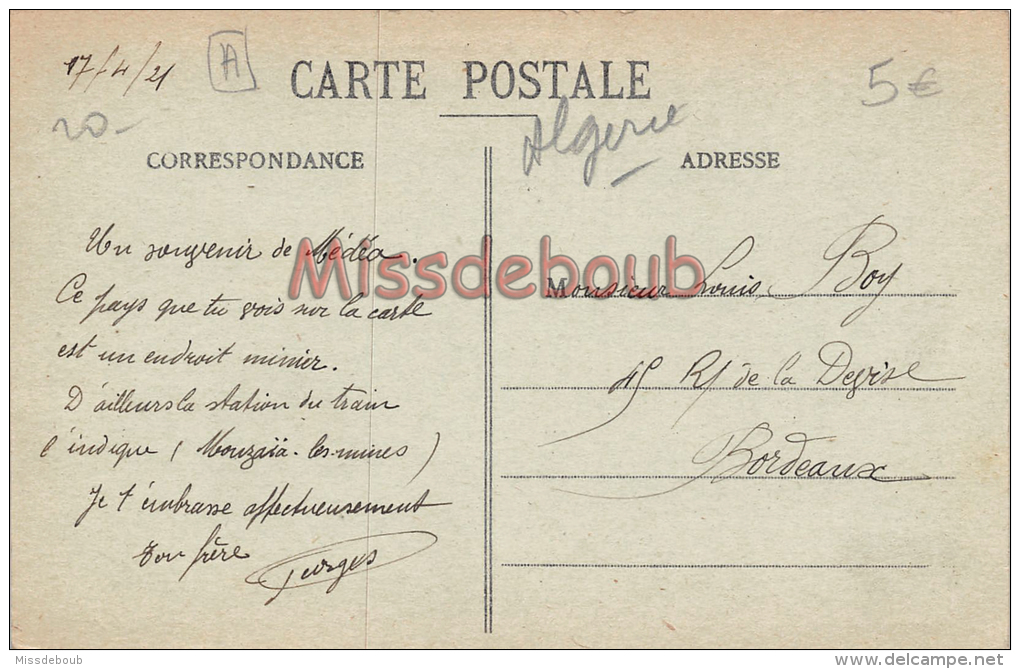 17/4/21
A
CARTE POSTALE
5€
20-
Algerie
CORRESPONDANCE
Un souvenir de Médéa.
Ce pays que tu vois sur la carte
est un endroit minier.
D'ailleurs la station du train
l'indique (Mouzaïa-les-mines)
Je t'embrasse affectueusement
ton frère
Missdeboub
ADRESSE
Monsieur Louis Boy
45 R/ de la Devise
Bordeaux
Missdeboub
delcampe.net